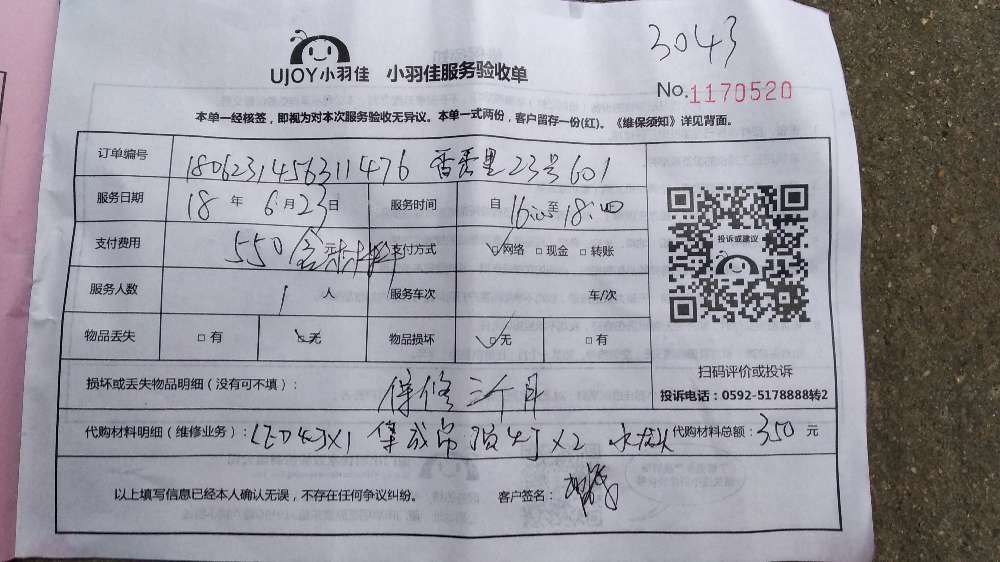 3043
UJOY小羽佳 小羽佳服务验收单
No.1170520
本单一经核签，即视为对本次服务验收无异议。本单一式两份，客户留存一份(红)。《维保须知》详见背面。
订单编号 18062314563111476 香秀里23号601
服务日期 18年6月23日 服务时间 自16:00至18:00
支付费用 550 元 支付方式 网络 现金 转账
投诉或建议
服务人数 1人 服务车次 车/次
物品丢失 有 无 物品损坏 无 有
扫码评价或投诉
损坏或丢失物品明细（没有可不填）： 保修三个月
投诉电话：0592-5178888转2
代购材料明细（维修业务）：LED灯x1 集成吊顶灯x2 水龙头 代购材料总额：350元
以上填写信息已经本人确认无误，不存在任何争议纠纷。 客户签名：